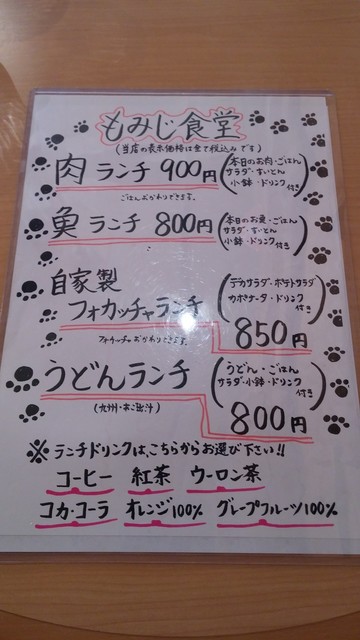 もみじ食堂
(当店の表示価格は全て税込みです)
肉ランチ 900円 (本日のお肉・ごはん サラダ・すいとん 小鉢・ドリンク付き)
ごはんおかわりできます。
魚ランチ 800円 (本日のお魚・ごはん サラダ・すいとん 小鉢・ドリンク付き)
自家製
フォカッチャランチ (デカサラダ・ポテトサラダ カポナータ・ドリンク付き)
フォカッチャおかわりできます。
850円
うどんランチ (うどん・ごはん サラダ・小鉢・ドリンク付き)
(九州・あご出汁)
800円
※ランチドリンクは、こちらからお選び下さい!!
コーヒー 紅茶 ウーロン茶
コカ・コーラ オレンジ100% グレープフルーツ100%